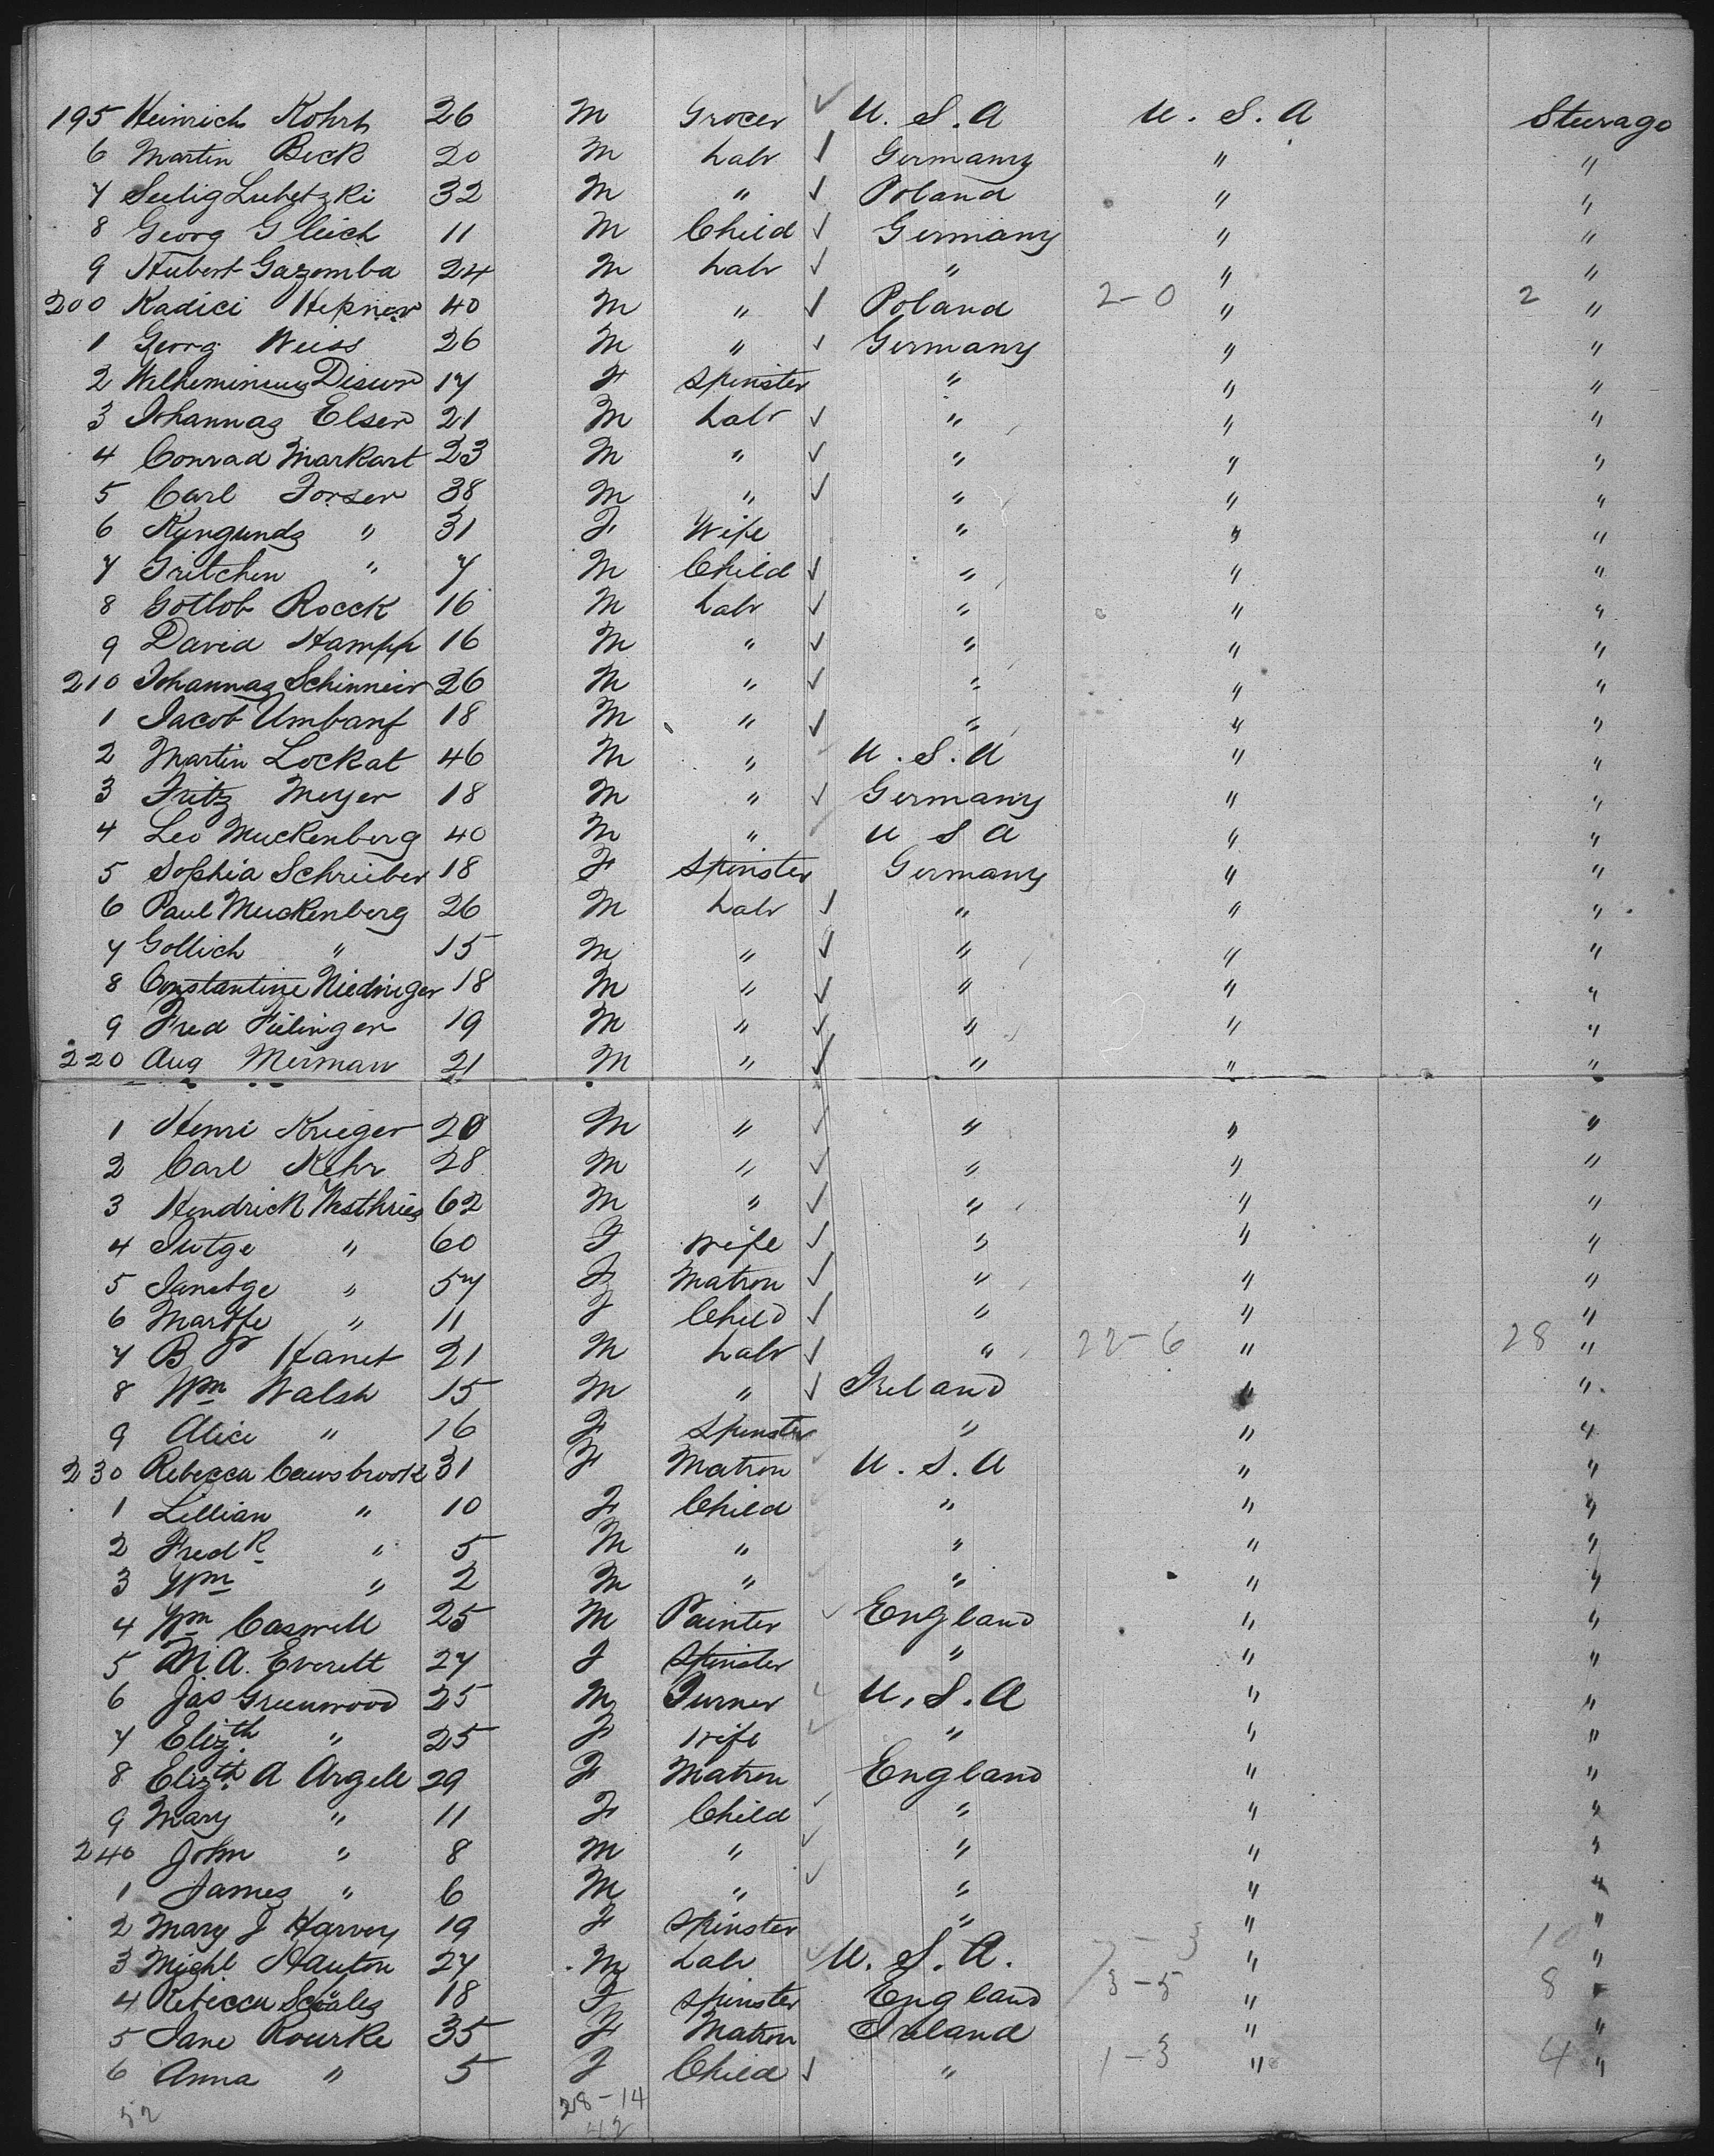 195 Heinrich Kohrs 26 M Grocer ✓ U. S. A U. S. A Steerage
6 Martin Beck 20 M Labr ✓ Germany " "
7 Seelig Lubetzki 32 M " ✓ Poland " "
8 Georg Gleich 11 M Child ✓ Germany " "
9 Hubert Gazomba 24 M Labr ✓ " " "
200 Kadici Hepner 40 M " ✓ Poland 2-0 " 2 "
1 Georg Weiss 26 M " ✓ Germany " "
2 17 F Spinster " " "
3 Johannas Elser 21 M Labr ✓ " " "
4 Conrad Markart 23 M " ✓ " " "
5 Carl Forser 38 M " ✓ " " "
6 Kungunda " 31 F Wife " " "
7 Gritchen " 7 M Child ✓ " " "
8 Gotlob Rocck 16 M Labr ✓ " " "
9 David Hampp 16 M " ✓ " " "
210 Johannas Schinneir 26 M " ✓ " " "
1 Jacob Umbanf 18 M " ✓ " " "
2 Martin Lockat 46 M " U. S. A " "
3 Fritz Meyer 18 M " ✓ Germany " "
4 Leo Muckenberg 40 M " U S A " "
5 Sophia Schreiber 18 F Spinster Germany " "
6 Paul Muckenberg 26 M Labr ✓ " " "
7 Gollich " 15 M " ✓ " " "
8 Constantine Niedringer 18 M " ✓ " " "
9 Fred Fielinger 19 M " ✓ " " "
220 Aug Merman 21 M " ✓ " " "
1 Henri Krieger 20 M " ✓ " " "
2 Carl Kehr 28 M " ✓ " " "
3 Hendrick Westhries 62 M " ✓ " " "
4 Jutge " 60 F Wife ✓ " " "
5 Janetge " 57 F Matron ✓ " " "
6 Martje " 11 F Child ✓ " " "
7 B P Hanet 21 M Labr ✓ " 22-6 " 28 "
8 Wm Walsh 15 M " ✓ Ireland " "
9 Alice " 16 F Spinster " " "
230 Rebecca Cawsbrook 31 F Matron U. S. A " "
1 Lillian " 10 F Child " " "
2 Fredk " 5 M " " " "
3 Wm " 2 M " " " "
4 Wm Caswell 25 M Painter ✓ England " "
5 M A. Everett 27 F Spinster " " "
6 Jas Greenwood 25 M Turner ✓ U. S. A " "
7 Elizth " 25 F Wife ✓ " " "
8 Elizth A Argell 29 F Matron England " "
9 Mary " 11 F Child ✓ " " "
240 John " 8 M " ✓ " " "
1 James " 6 M " ✓ " " "
2 Mary J Harvey 19 F Spinster " " "
3 Michl Hauton 27 M Labr ✓ U. S. A. 7-3 " 10 "
4 Rebecca Scoales 18 F Spinster England 3-5 " 8 "
5 Jane Rourke 35 F Matron Ireland " "
6 Anna " 5 F Child ✓ " 1-3 " 4 "
52 28-14
42